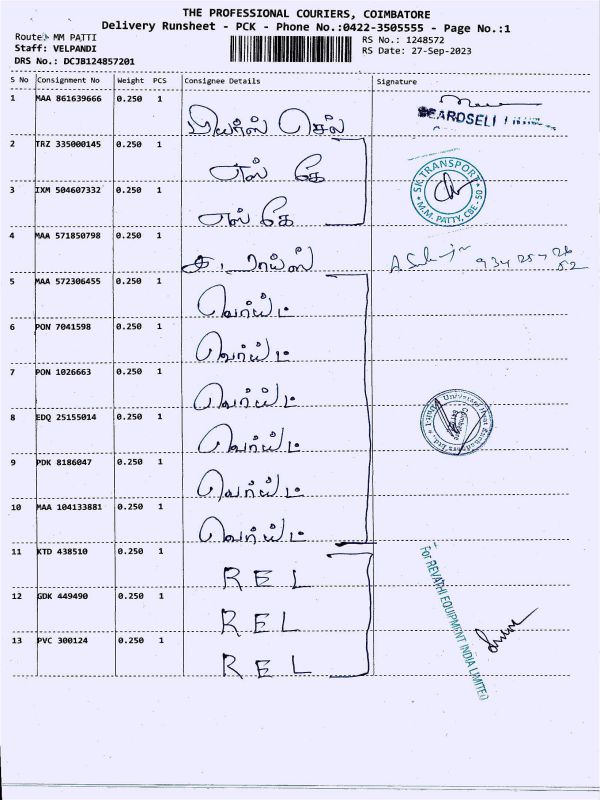 THE PROFESSIONAL COURIERS, COIMBATORE
Delivery Runsheet - PCK - Phone No.:0422-3505555 - Page No.:1
Route: MM PATTI
RS No.: 1248572
Staff: VELPANDI
RS Date: 27-Sep-2023
DRS No.: DCJB124857201
S No Consignment No Weight PCS Consignee Details Signature
1 MAA 861639666 0.250 1
2 TRZ 335000145 0.250 1 எஸ் கே
SK TRANSPORT
M.M. PATTY, CBE-50
3 IXM 504607332 0.250 1 எஸ் கே
4 MAA 571850798 0.250 1
5 MAA 572306455 0.250 1
6 PON 7041598 0.250 1
7 PON 1026663 0.250 1
8 EDQ 25155014 0.250 1
Universal Heat Exchangers Ltd.
9 PDK 8186047 0.250 1
10 MAA 104133881 0.250 1
11 KTD 438510 0.250 1 REL
12 GDK 449490 0.250 1 REL
13 PVC 300124 0.250 1 REL
For REVATHI EQUIPMENT INDIA LIMITED